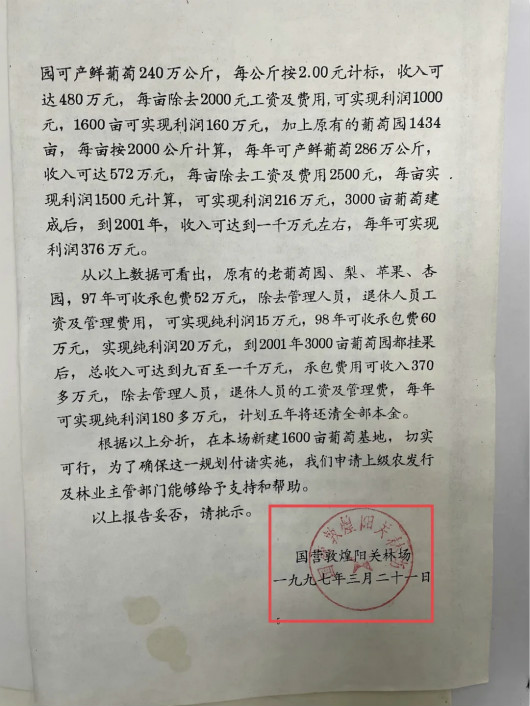 园可产鲜葡萄240万公斤，每公斤按2.00元计标，收入可
达480万元，每亩除去2000元工资及费用，可实现利润1000
元，1600亩可实现利润160万元，加上原有的葡萄园1434
亩，每亩按2000公斤计算，每年可产鲜葡萄286万公斤，
收入可达572万元，每亩除去工资及费用2500元，每亩实
现利润1500元计算，可实现利润216万元，3000亩葡萄建
成后，到2001年，收入可达到一千万元左右，每年可实现
利润376万元。
从以上数据可看出，原有的老葡萄园、梨、苹果、杏
园，97年可收承包费52万元，除去管理人员，退休人员工
资及管理费用，可实现纯利润15万元，98年可收承包费60
万元，实现纯利润20万元，到2001年3000亩葡萄园都挂果
后，总收入可达到九百至一千万元，承包费用可收入370
多万元，除去管理人员，退休人员的工资及管理费，每年
可实现纯利润180多万元，计划五年将还清全部本金。
根据以上分折，在本场新建1600亩葡萄基地，切实
可行，为了确保这一规划付诸实施，我们申请上级农发行
及林业主管部门能够给予支持和帮助。
以上报告妥否，请批示。
国营敦煌阳关林场
国营敦煌阳关林场
一九九七年三月二十一日